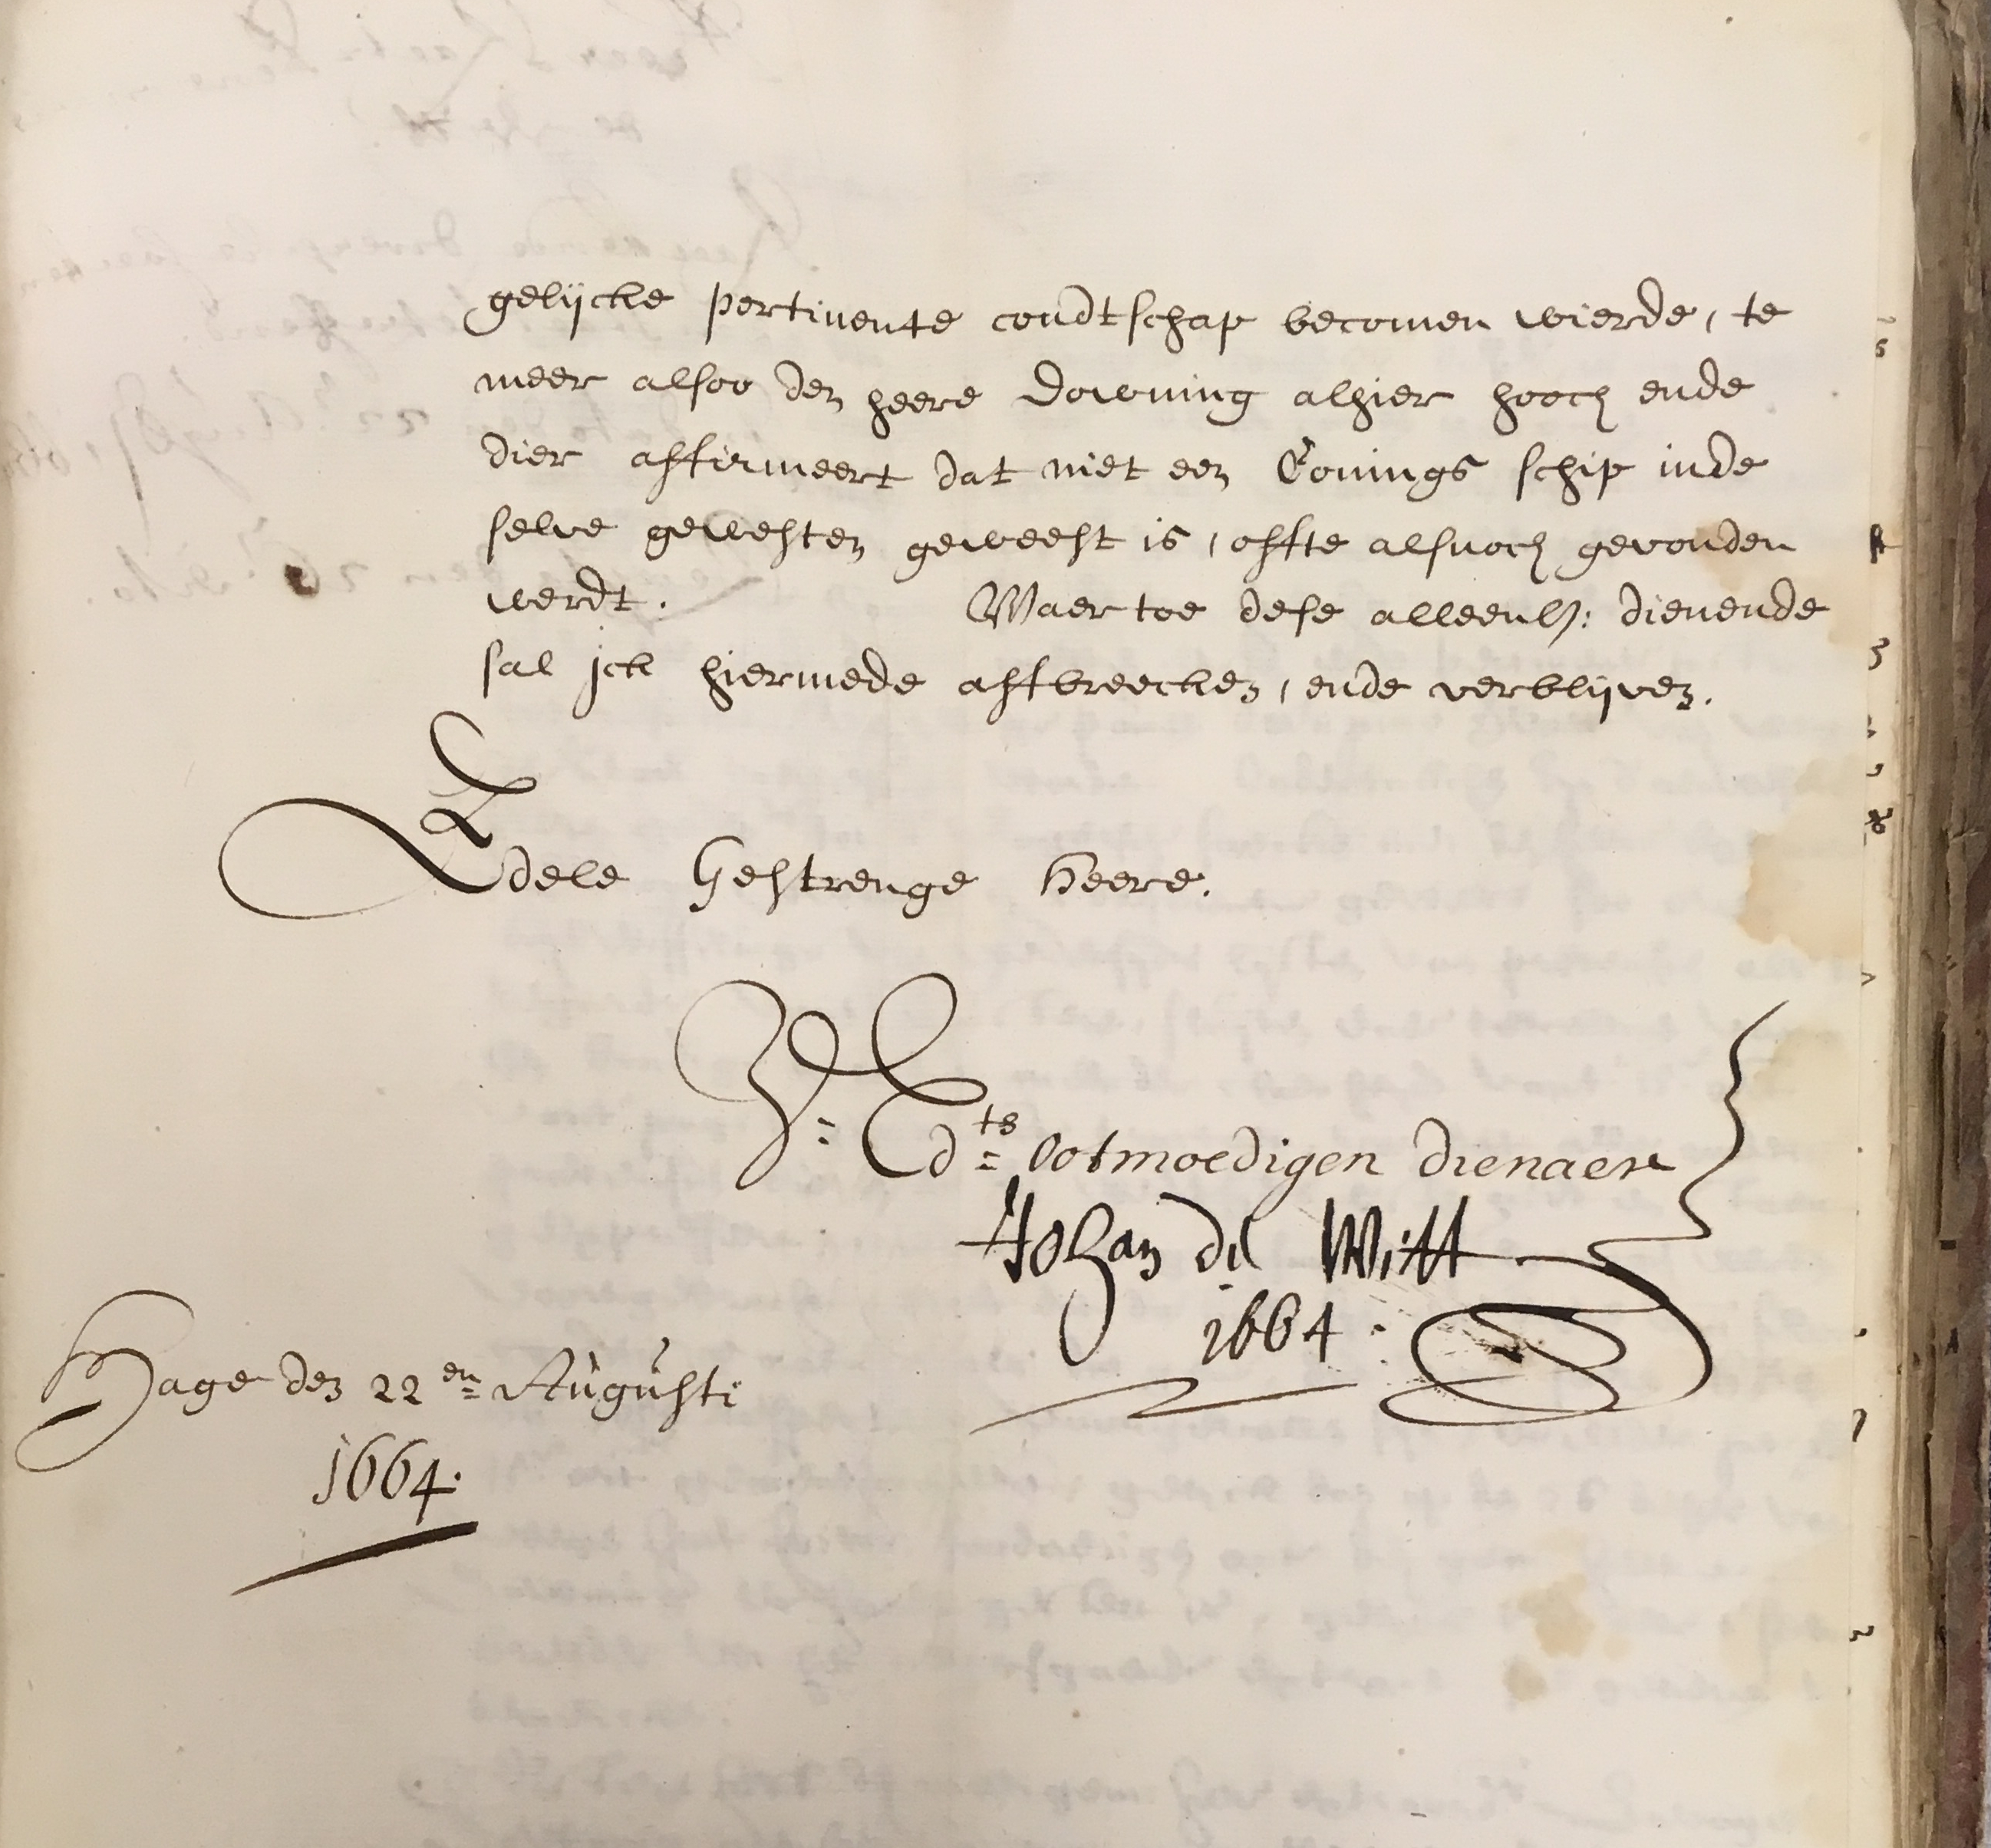 gelijcke pertinente condtschap becomen wierde, te
meer alsoo den heere Downing alhier hooch ende
dier affirmeert dat niet een Conings schip inde
selve gewesten geweest is, offte alsnoch gevonden
werdt. Waer toe dese alleenl: dienende
sal jck hiermede affbreecken, ende verblijven.
Edele Gestrenge Heere.
V: Ed:ts Ootmoedigen dienaer
Johan de Witt
1664.
Hage den 22en Augusti
1664.